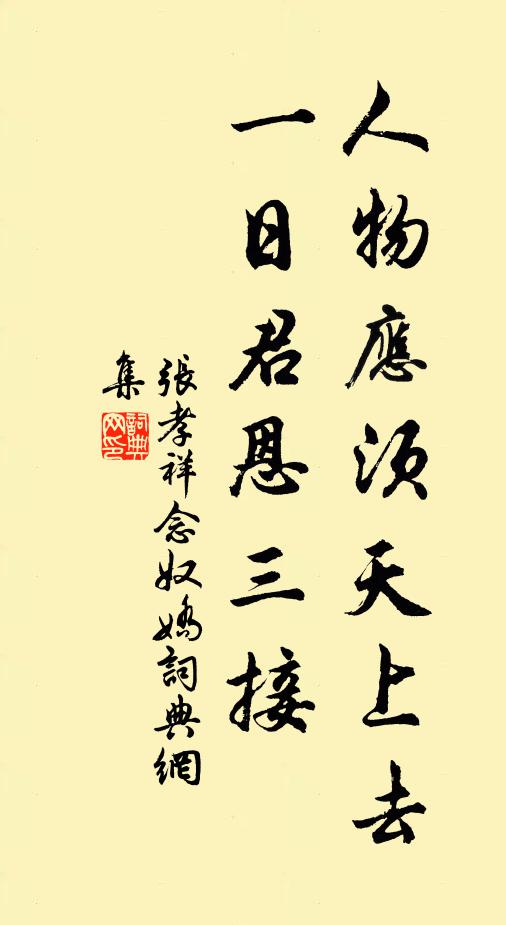 人物應須天上去
一日君恩三接
張孝祥念奴嬌詞典網
集
詞典
网印